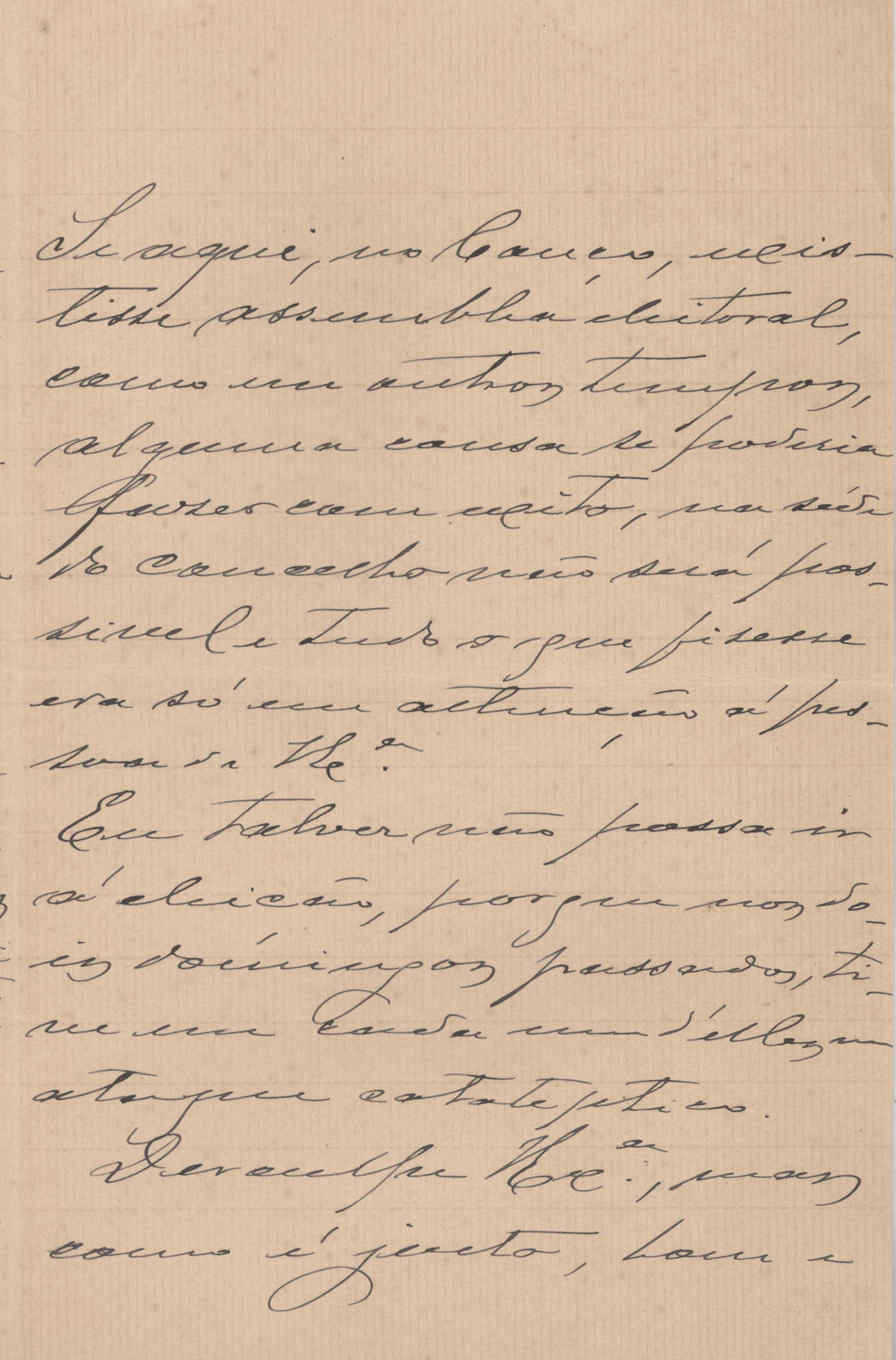 Se aqui, no Couço, exis-
tisse assemblêa eleitoral,
como em outros tempos,
alguma cousa se poderia
fazer com exito, na séde
do concelho não será pos-
sivel e tudo o que fizesse
era só em attenção á pes-
soa de V Exª.
Eu talvez não possa ir
á eleicão, porque nos do-
is domingos passados, ti-
ve em cada um d'elles um
ataque cataleptico.
Desculpe V Exª., mas
como é justo, bom e